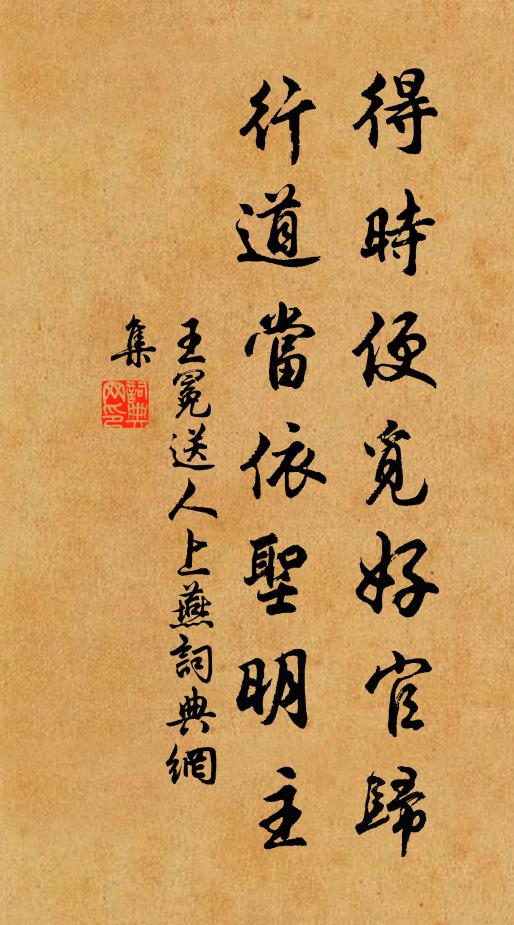 得時便覓好官歸
行道當依聖明主
王冕送人上燕詞典網
集
詞典網印